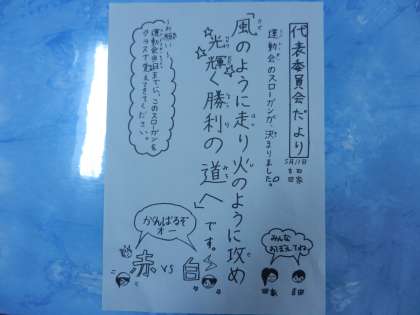 代表委員会だより
5月11日
運動会のスローガンが決まりました。
「風のように走り火のように攻め
かぜ
はし
ひ
せ
光輝く勝利の道へ」です。
ひかりかがや
しょうり
みち
〜お願い〜
運動会当日までに、このスローガンを
クラスで覚えてきてください。
みんな
おぼえてね
がんばるぞ
オー
赤 VS 白